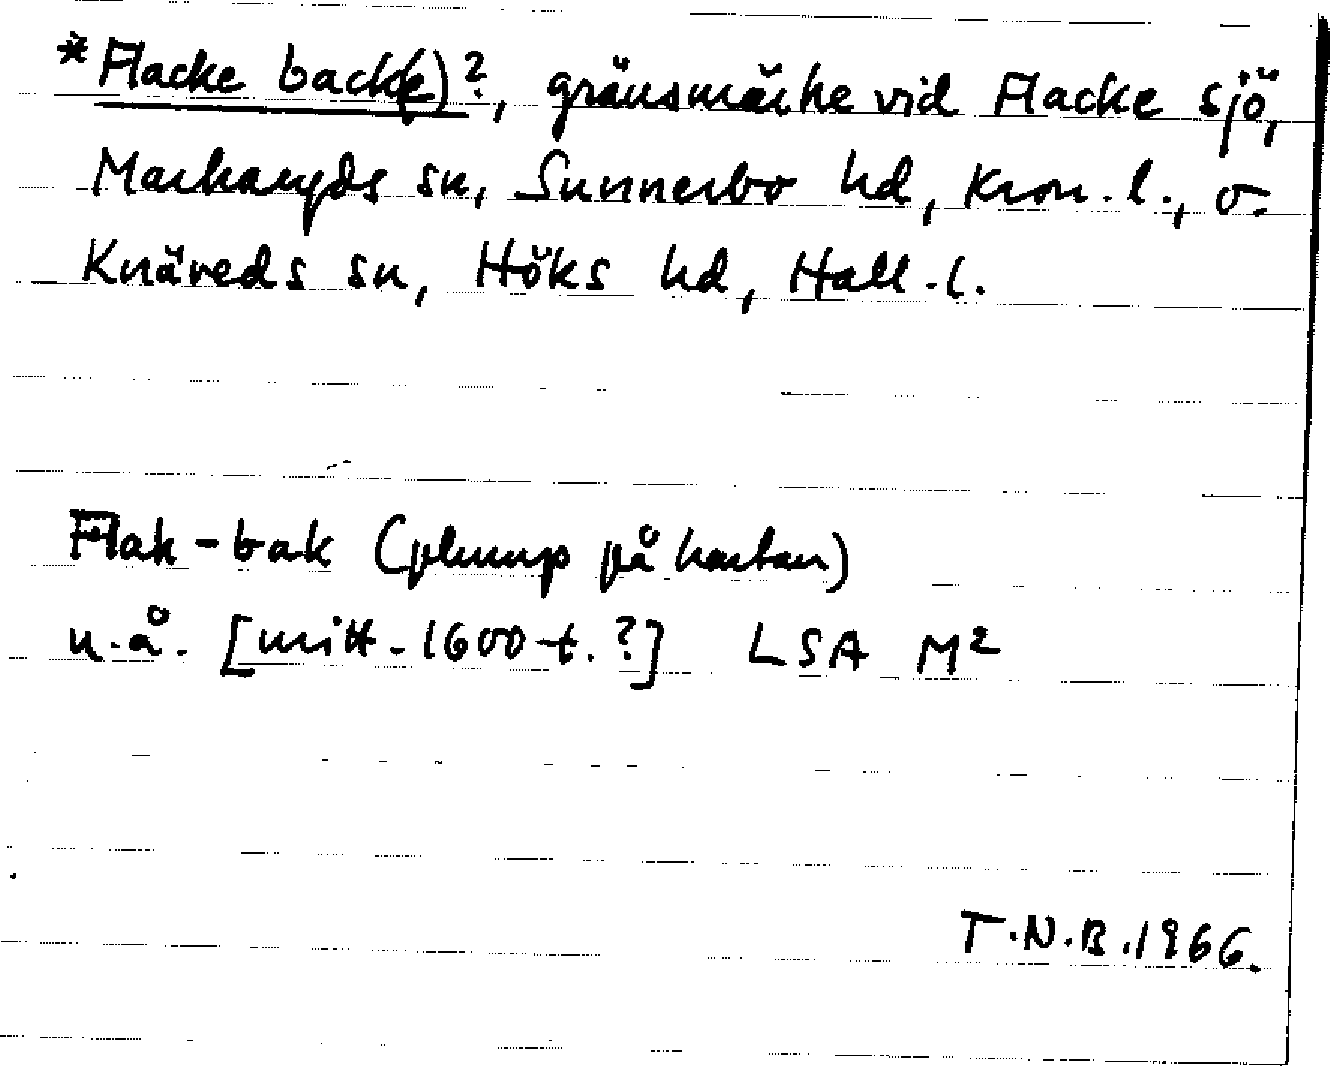 *Flacke back(e)?, gränsmärke vid Flacke sjö,
Markaryds sn, Sunnerbo hd, Kron. l., o.
Knäreds sn, Höks hd, Hall. l.
Flak-bak (plump på kartan)
u.å. [mitt. 1600-t.?] LSA M²
T.N.B. 1966.